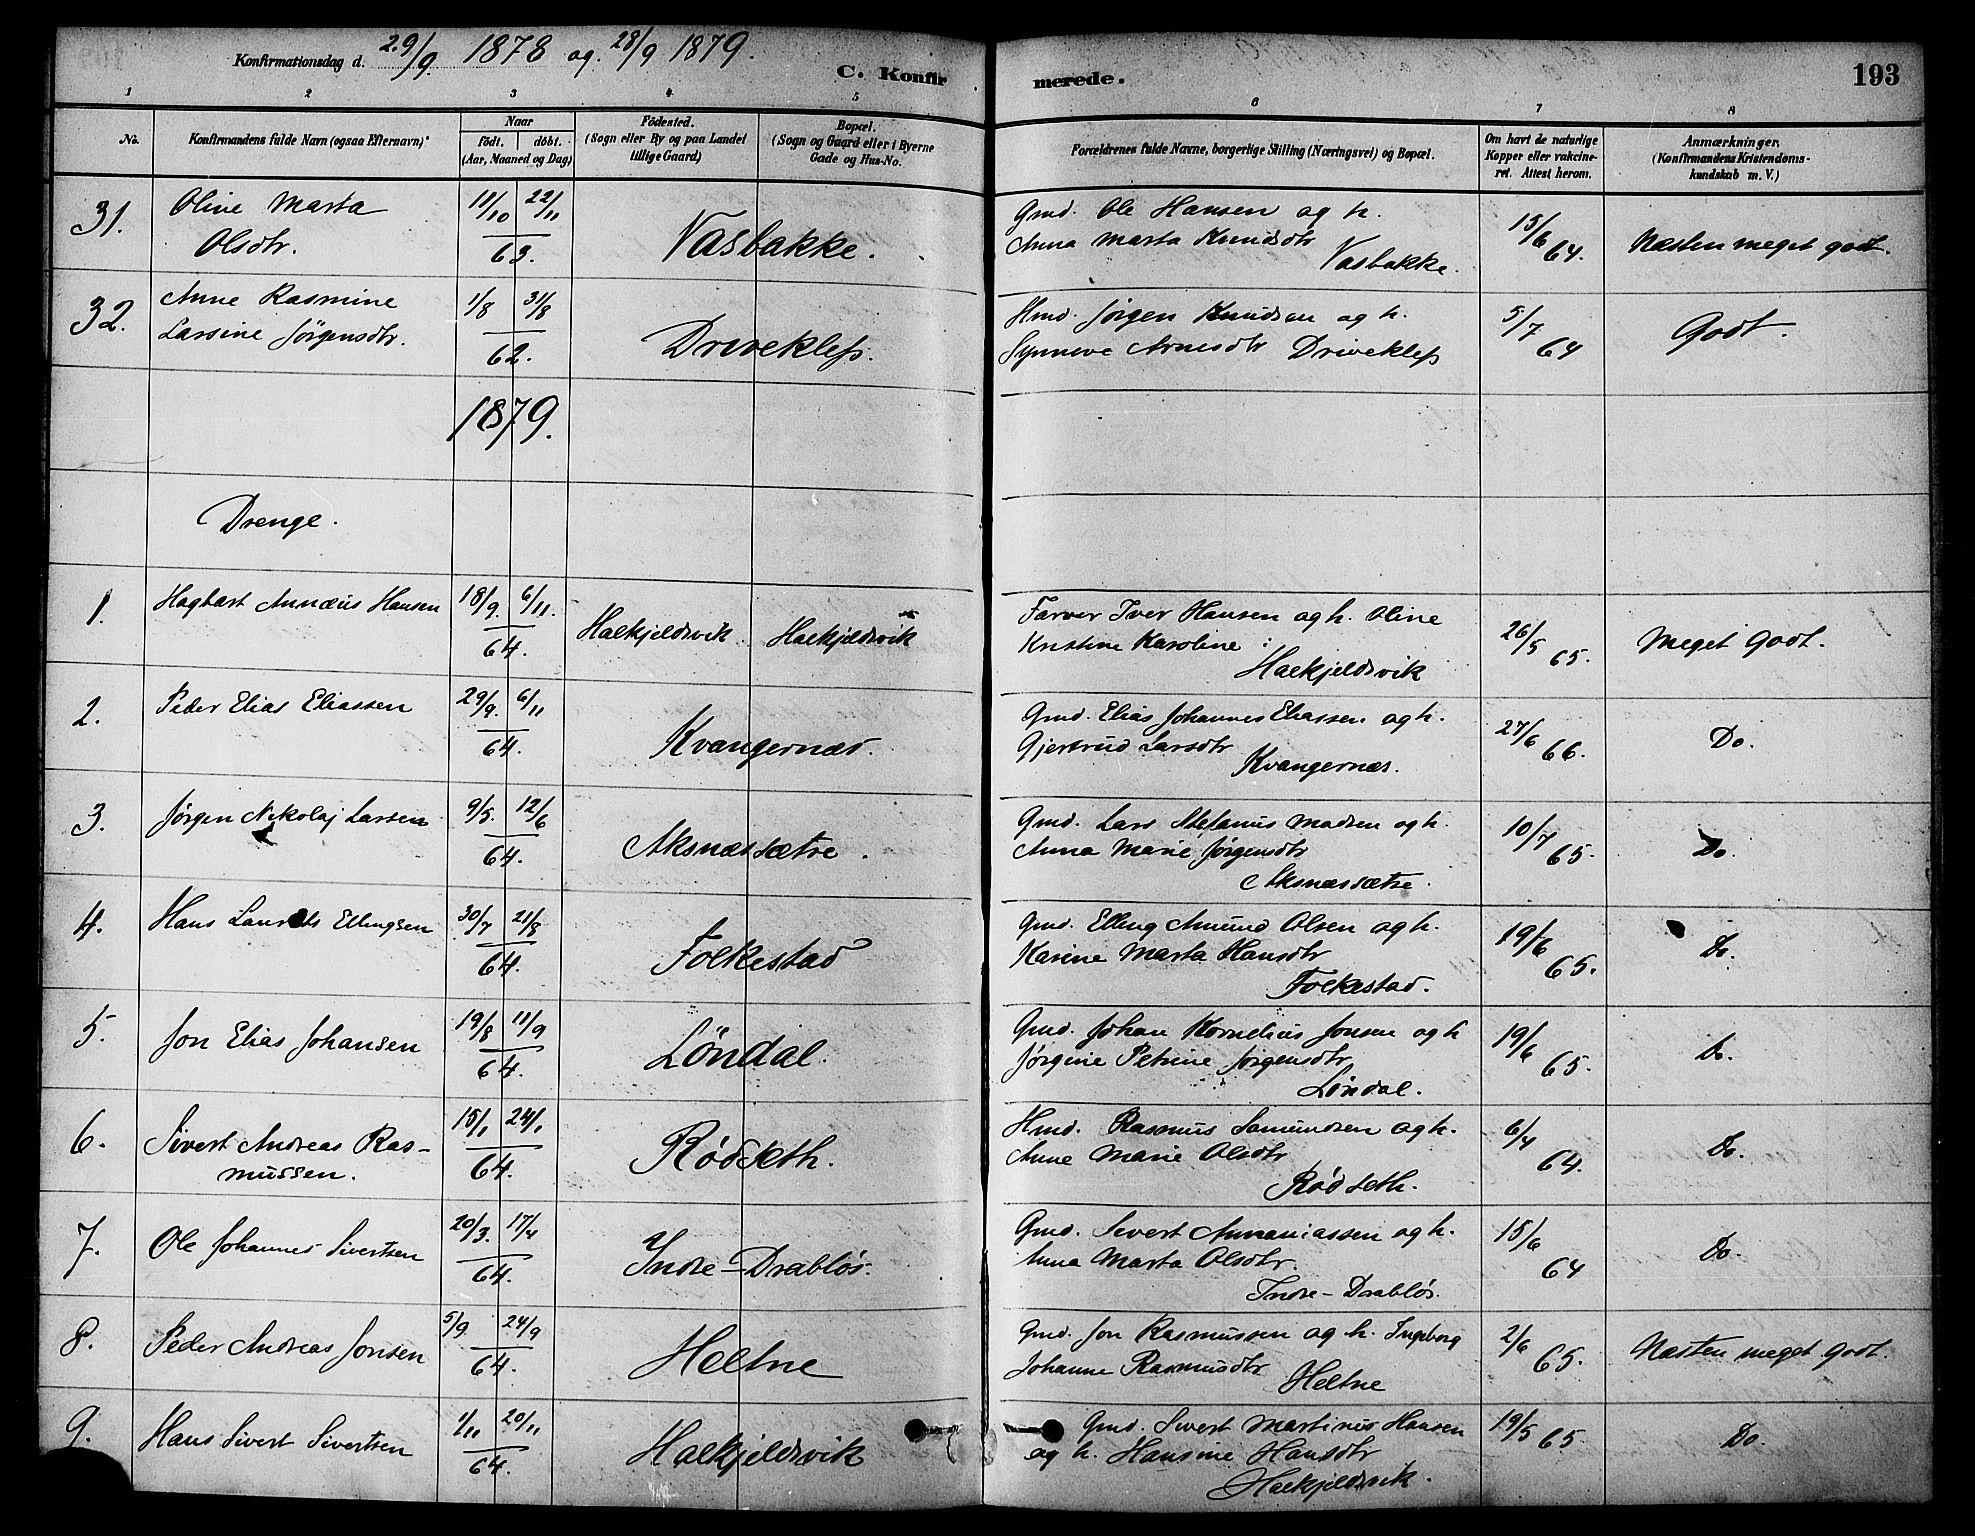 Konfirmationsdag d. 29/9 1878 og 28/9 1879.
C. Konfirmerede.
193
1 2 3 4 5 6 7 8
No.
Konfirmandens fulde Navn (ogsaa Efternavn).
Naar
födt. döbt.
(Aar, Maaned og Dag)
Födested.
(Sogn eller By og paa Landet
tillige Gaard)
Bopæl.
(Sogn og Gaard eller i Byerne
Gade og Hus-No.
Forældrenes fulde Navne, borgerlige Stilling (Næringsvei) og Bopæl.
Om havt de naturlige
Kopper eller vakcine-
ret. Attest herom.
Anmærkninger.
(Konfirmandens Kristendoms-
kundskab m. V.)
31. Oline Marta
Olsdtr.
11/10 22/11
63.
Vasbakke.
Gmd. Ole Hansen og h.
Anna Marta Knudsdtr
Vasbakke.
13/6 64.
Næsten meget godt.
32. Anne Rasmine
Larsine Jörgensdtr.
1/8 31/8
62.
Driveklep.
Hmd. Jörgen Knudsen og h.
Synneve Arnesdtr Driveklep
5/7 64
Godt.
1879.
Drenge.
1. Hagbart Annæus Hansen
18/9. 6/11.
64.
Halkjeldsvik. Halkjeldsvik
Farver Iver Hansen og h. Oline
Kristine Karoline :
Halkjeldsvik
26/5 65.
Meget Godt.
2. Peder Elias Eliassen
29/9. 6/11
64.
Kvangernæs.
Gmd. Elias Johannes Eliassen og h.
Gjertrud Larsdtr
Kvangernæs.
27/6 66.
Do.
3. Jørgen Nikolaj Larsen
9/5. 12/6
64.
Aksnæssætre.
Gmd. Lars Stefanus Madsen og h.
Anna Marie Jørgensdtr
Aksnæssætre.
10/7 65.
Do.
4. Hans Laurits Ellingsen
30/7 21/8
64.
Folkestad
Gmd. Elling Amund Olsen og h.
Karine Marta Hansdtr
Folkestad.
19/6 65.
Do.
5. Jon Elias Johansen
19/8 11/9
64.
Löndal.
Gmd. Johan Kornelius Jonsen og h
Jørgine Petrine Jørgensdtr
Löndal.
19/6 65.
Do.
6. Sivert Andreas Ras-
mussen.
15/1 24/1
64.
Rødseth.
Hmd. Rasmus Samundsen og h.
Anne Marie Olsdtr
Rødseth.
6/4 64.
Do.
7. Ole Johannes Sivertsen
20/3. 17/4
64.
Indre-Drabløs.
Gmd. Sivert Annaniassen og h.
Anna Marta Olsdtr.
Indre-Drabløs.
15/6 64
Do.
8. Peder Andreas Jonsen
5/9. 24/9
64.
Heltne
Gmd. Jon Rasmussen og h. Ingeborg
Johanne Rasmusdtr
Heltne
2/6 65.
Næsten meget Godt.
9. Hans Sivert Sivertsen
1/11 20/11
64.
Halkjeldsvik
Gmd. Sivert Martinus Hansen
og h. Hansine Hansdtr
Halkjeldsvik.
19/5 65
Do.